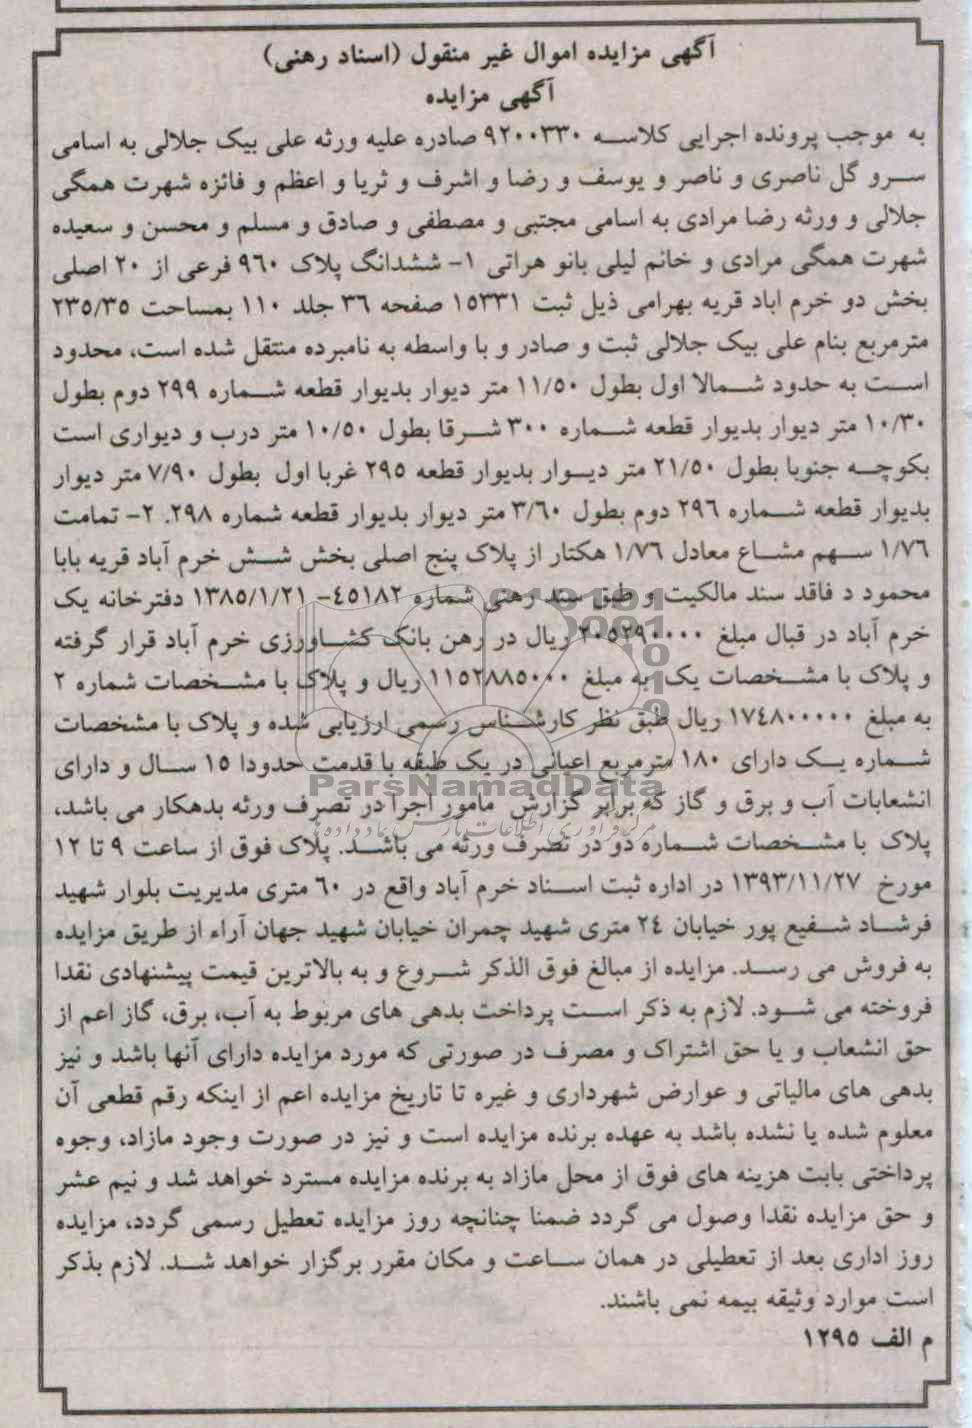 آگهی مزایده اموال غیر منقول (اسناد رهنی)
آگهی مزایده
به موجب پرونده اجرایی کلاسه ۹۲۰۰۳۳۰ صادره علیه ورثه علی بیک جلالی به اسامی
سرو گل ناصری و ناصر و یوسف و رضا و اشرف و ثریا و اعظم و فائزه شهرت همگی
جلالی و ورثه رضا مرادی به اسامی مجتبی و مصطفی و صادق و مسلم و محسن و سعیده
شهرت همگی مرادی و خانم لیلی بانو هراتی ۱- ششدانگ پلاک ۹۶۰ فرعی از ۲۰ اصلی
بخش دو خرم اباد قریه بهرامی ذیل ثبت ۱۵۳۳۱ صفحه ۳۶ جلد ۱۱۰ بمساحت ۲۳۵/۳۵
مترمربع بنام علی بیک جلالی ثبت و صادر و با واسطه به نامبرده منتقل شده است، محدود
است به حدود شمالا اول بطول ۱۱/۵۰ متر دیوار بدیوار قطعه شماره ۲۹۹ دوم بطول
۱۰/۳۰ متر دیوار بدیوار قطعه شماره ۳۰۰ شرقا بطول ۱۰/۵۰ متر درب و دیواری است
بکوچه جنوبا بطول ۲۱/۵۰ متر دیوار بدیوار قطعه ۲۹۵ غربا اول بطول ۷/۹۰ متر دیوار
بدیوار قطعه شماره ۲۹۶ دوم بطول ۳/۶۰ متر دیوار بدیوار قطعه شماره ۲۹۸. ۲- تمامت
۱/۷۶ سهم مشاع معادل ۱/۷۶ هکتار از پلاک پنج اصلی بخش شش خرم آباد قریه بابا
محمود د فاقد سند مالکیت و طبق سند رهنی شماره ۴۵۱۸۲- ۱۳۸۵/۱/۲۱ دفترخانه یک
خرم آباد در قبال مبلغ ۲۰۵۲۹۰۰۰۰ ریال در رهن بانک کشاورزی خرم آباد قرار گرفته
و پلاک با مشخصات یک به مبلغ ۱۱۵۲۸۸۵۰۰۰ ریال و پلاک با مشخصات شماره ۲
به مبلغ ۱۷۴۸۰۰۰۰۰ ریال طبق نظر کارشناس رسمی ارزیابی شده و پلاک با مشخصات
شماره یک دارای ۱۸۰ مترمربع اعیانی در یک طبقه با قدمت حدودا ۱۵ سال و دارای
انشعابات آب و برق و گاز که برابر گزارش مامور اجرا در تصرف ورثه بدهکار می باشد،
پلاک با مشخصات شماره دو در تصرف ورثه می باشد. پلاک فوق از ساعت ۹ تا ۱۲
مورخ ۱۳۹۳/۱۱/۲۷ در اداره ثبت اسناد خرم آباد واقع در ۶۰ متری مدیریت بلوار شهید
فرشاد شفیع پور خیابان ۲۴ متری شهید چمران خیابان شهید جهان آراء از طریق مزایده
به فروش می رسد. مزایده از مبالغ فوق الذکر شروع و به بالاترین قیمت پیشنهادی نقدا
فروخته می شود. لازم به ذکر است پرداخت بدهی های مربوط به آب، برق، گاز اعم از
حق انشعاب و یا حق اشتراک و مصرف در صورتی که مورد مزایده دارای آنها باشد و نیز
بدهی های مالیاتی و عوارض شهرداری و غیره تا تاریخ مزایده اعم از اینکه رقم قطعی آن
معلوم شده یا نشده باشد به عهده برنده مزایده است و نیز در صورت وجود مازاد، وجوه
پرداختی بابت هزینه های فوق از محل مازاد به برنده مزایده مسترد خواهد شد و نیم عشر
و حق مزایده نقدا وصول می گردد ضمنا چنانچه روز مزایده تعطیل رسمی گردد، مزایده
روز اداری بعد از تعطیلی در همان ساعت و مکان مقرر برگزار خواهد شد. لازم بذکر
است موارد وثیقه بیمه نمی باشند.
م الف ۱۲۹۵
ParsNamadData